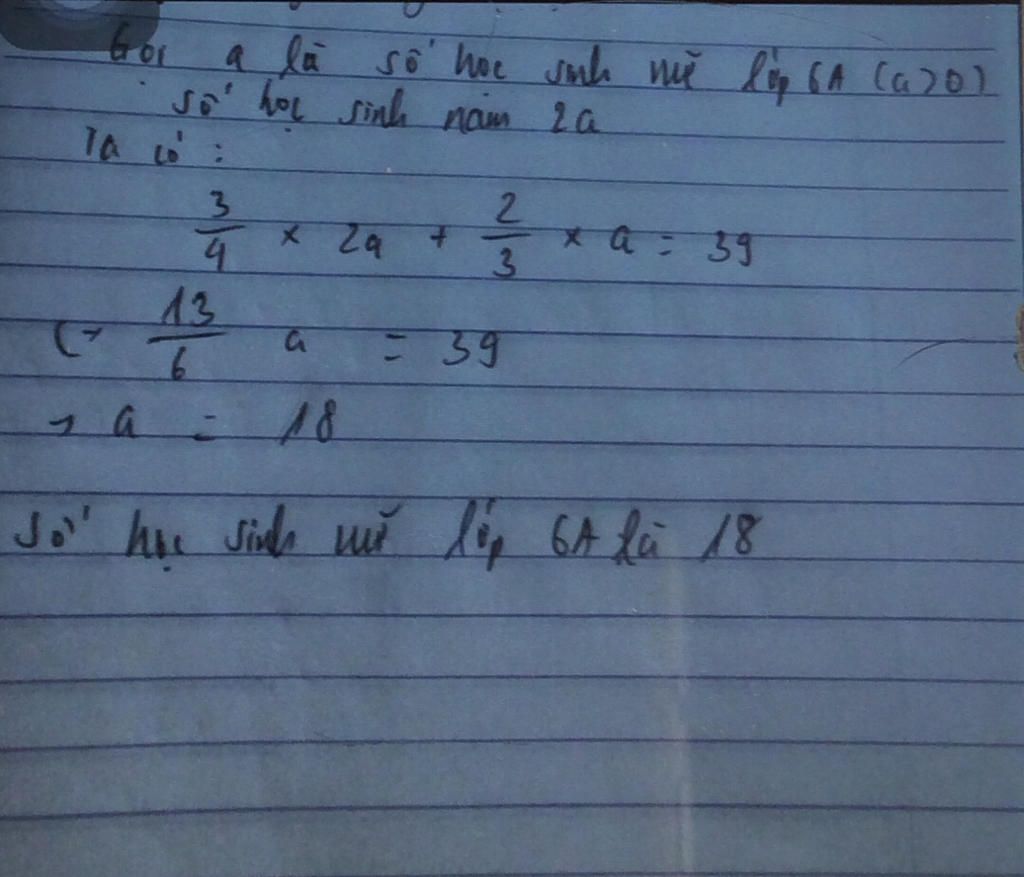 Gọi a là số học sinh nữ lớp 6A (a>0)
số học sinh nam 2a
Ta có :
3/4 × 2a + 2/3 × a = 39
(→ 13/6 a = 39
→ a = 18
Số học sinh nữ lớp 6A là 18